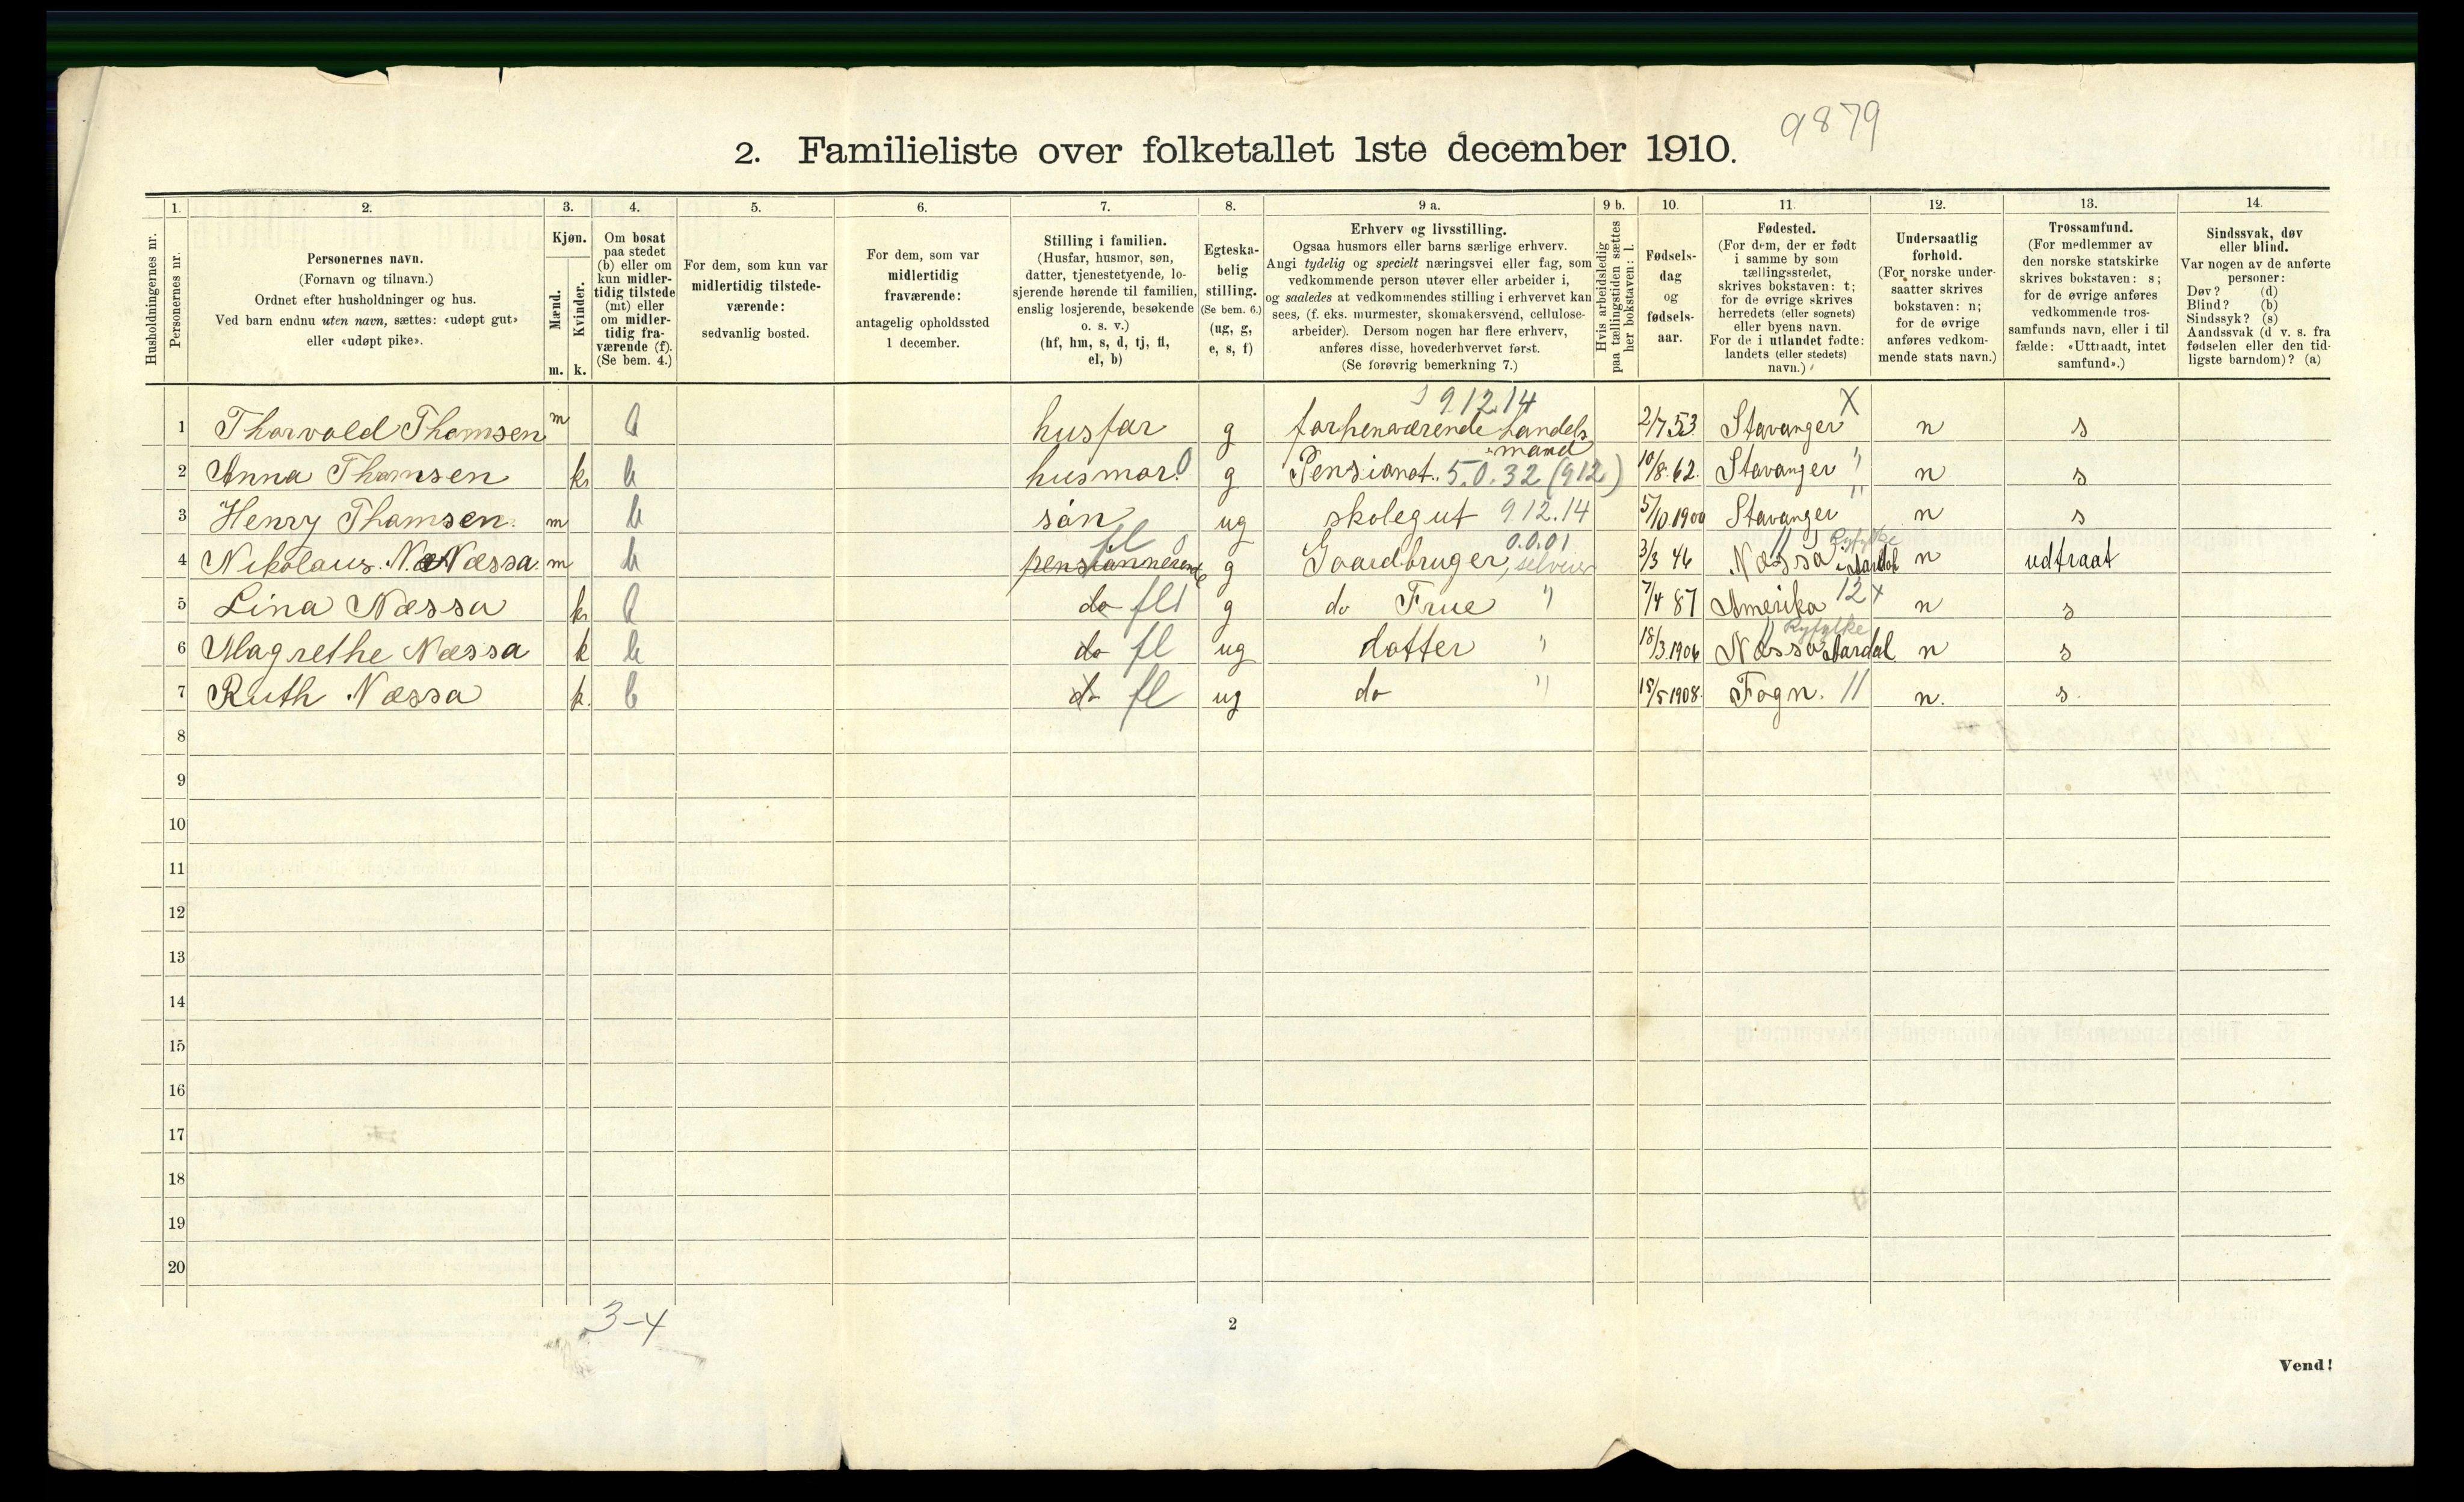 9879
2. Familieliste over folketallet 1ste december 1910.
Husholdningernes nr.
1. Personernes nr.
2. Personernes navn. (Fornavn og tilnavn.) Ordnet efter husholdninger og hus. Ved barn endnu uten navn, sættes: «udøpt gut» eller «udøpt pike».
3. Kjøn. Mænd. m. Kvinder. k.
4. Om bosat paa stedet (b) eller om kun midlertidig tilstede (mt) eller om midlertidig fraværende (f). (Se bem. 4.)
5. For dem, som kun var midlertidig tilstedeværende: sedvanlig bosted.
6. For dem, som var midlertidig fraværende: antagelig opholdssted 1 december.
7. Stilling i familien. (Husfar, husmor, søn, datter, tjenestetyende, losjerende hørende til familien, enslig losjerende, besøkende o. s. v.) (hf, hm, s, d, tj, fl, el, b)
8. Egteskabelig stilling. (Se bem. 6.) (ug, g, e, s, f)
9 a. Erhverv og livsstilling. Ogsaa husmors eller barns særlige erhverv. Angi tydelig og specielt næringsvei eller fag, som vedkommende person utøver eller arbeider i, og saaledes at vedkommendes stilling i erhvervet kan sees, (f. eks. murmester, skomakersvend, cellulosearbeider). Dersom nogen har flere erhverv, anføres disse, hovederhvervet først. (Se forøvrig bemerkning 7.)
9 b. Hvis arbeidsledig paa tællingstiden sættes her bokstaven: l.
10. Fødselsdag og fødselsaar.
11. Fødested. (For dem, der er født i samme by som tællingsstedet, skrives bokstaven: t; for de øvrige skrives herredets (eller sognets) eller byens navn. For de i utlandet fødte: landets (eller stedets) navn.)
12. Undersaatlig forhold. (For norske undersaatter skrives bokstaven: n; for de øvrige anføres vedkommende stats navn.)
13. Trossamfund. (For medlemmer av den norske statskirke skrives bokstaven: s; for de øvrige anføres vedkommende trossamfunds navn, eller i tilfælde: «Uttraadt, intet samfund».)
14. Sindssvak, døv eller blind. Var nogen av de anførte personer: Døv? (d) Blind? (b) Sindssyk? (s) Aandssvak (d. v. s. fra fødselen eller den tidligste barndom)? (a)
1 Thorvald Thomsen m b husfar g forhenværende handelsmand 9.12.14 2/7 53 Stavanger X n s
2 Anna Thomsen k b husmor g Pensionat. 5.0.32 (912) 10/8. 62. Stavanger " n s
3 Henry Thomsen. m b søn ug skolegut 9.12.14 5/10.1900 Stavanger " n s
4 Nikolaus. N. Næssa. m b pensionnerende fl g Gaardbruger, selveier 0.0.01 3/3 46 Næssa i Aardal Ryfylke 11 n udtraat
5 Lina Næssa k b do fl g do Frue " 7/4 87 Amerika 12 x n s
6 Magrethe Næssa k b do fl ug datter " 18/3.1906 Næssa Aardal Ryfylke 11 n s
7 Ruth Næssa k. b do fl ug do " 18/5 1908. Fogn. 11 n. s.
8
9
10
11
12
13
14
15
16
17
18
19
20
3-4
2
Vend!